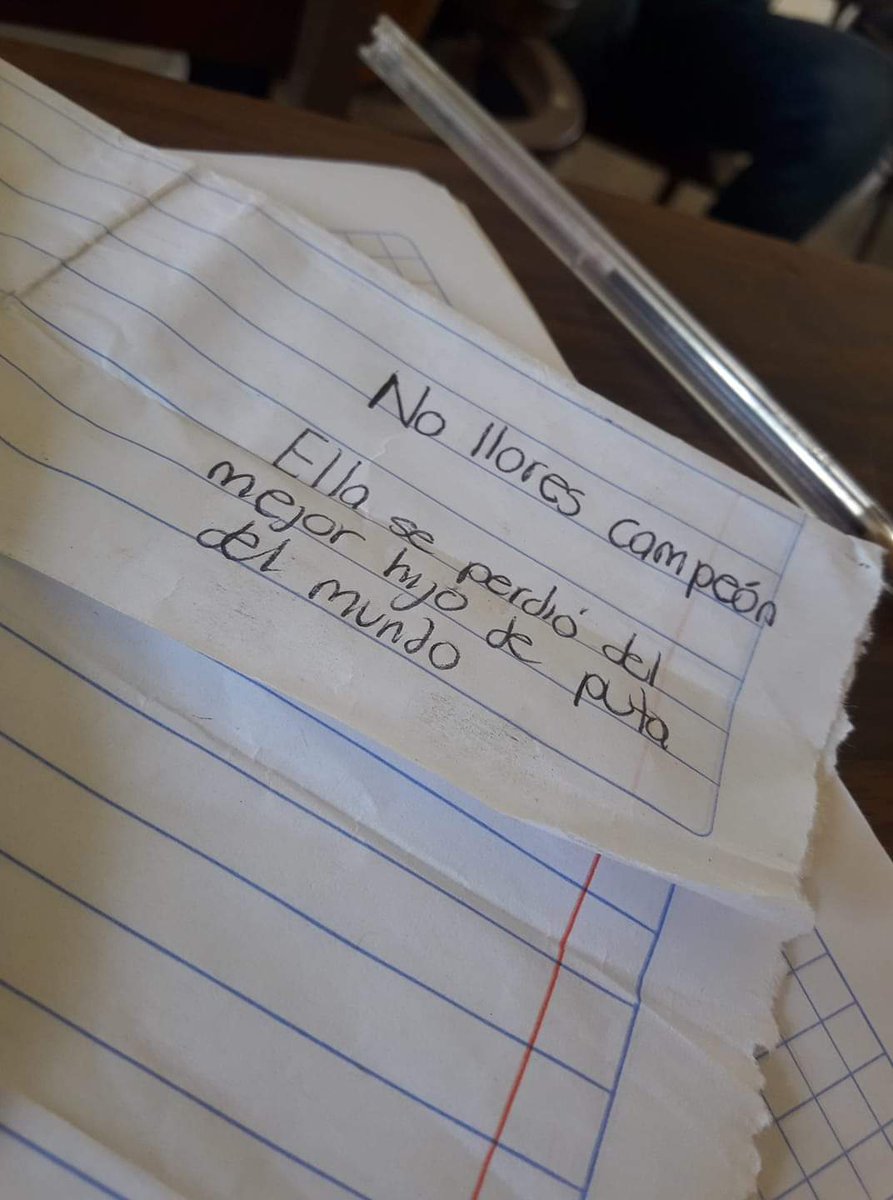 No llores campeón
Ella se perdió del
mejor hijo de puta
del mundo